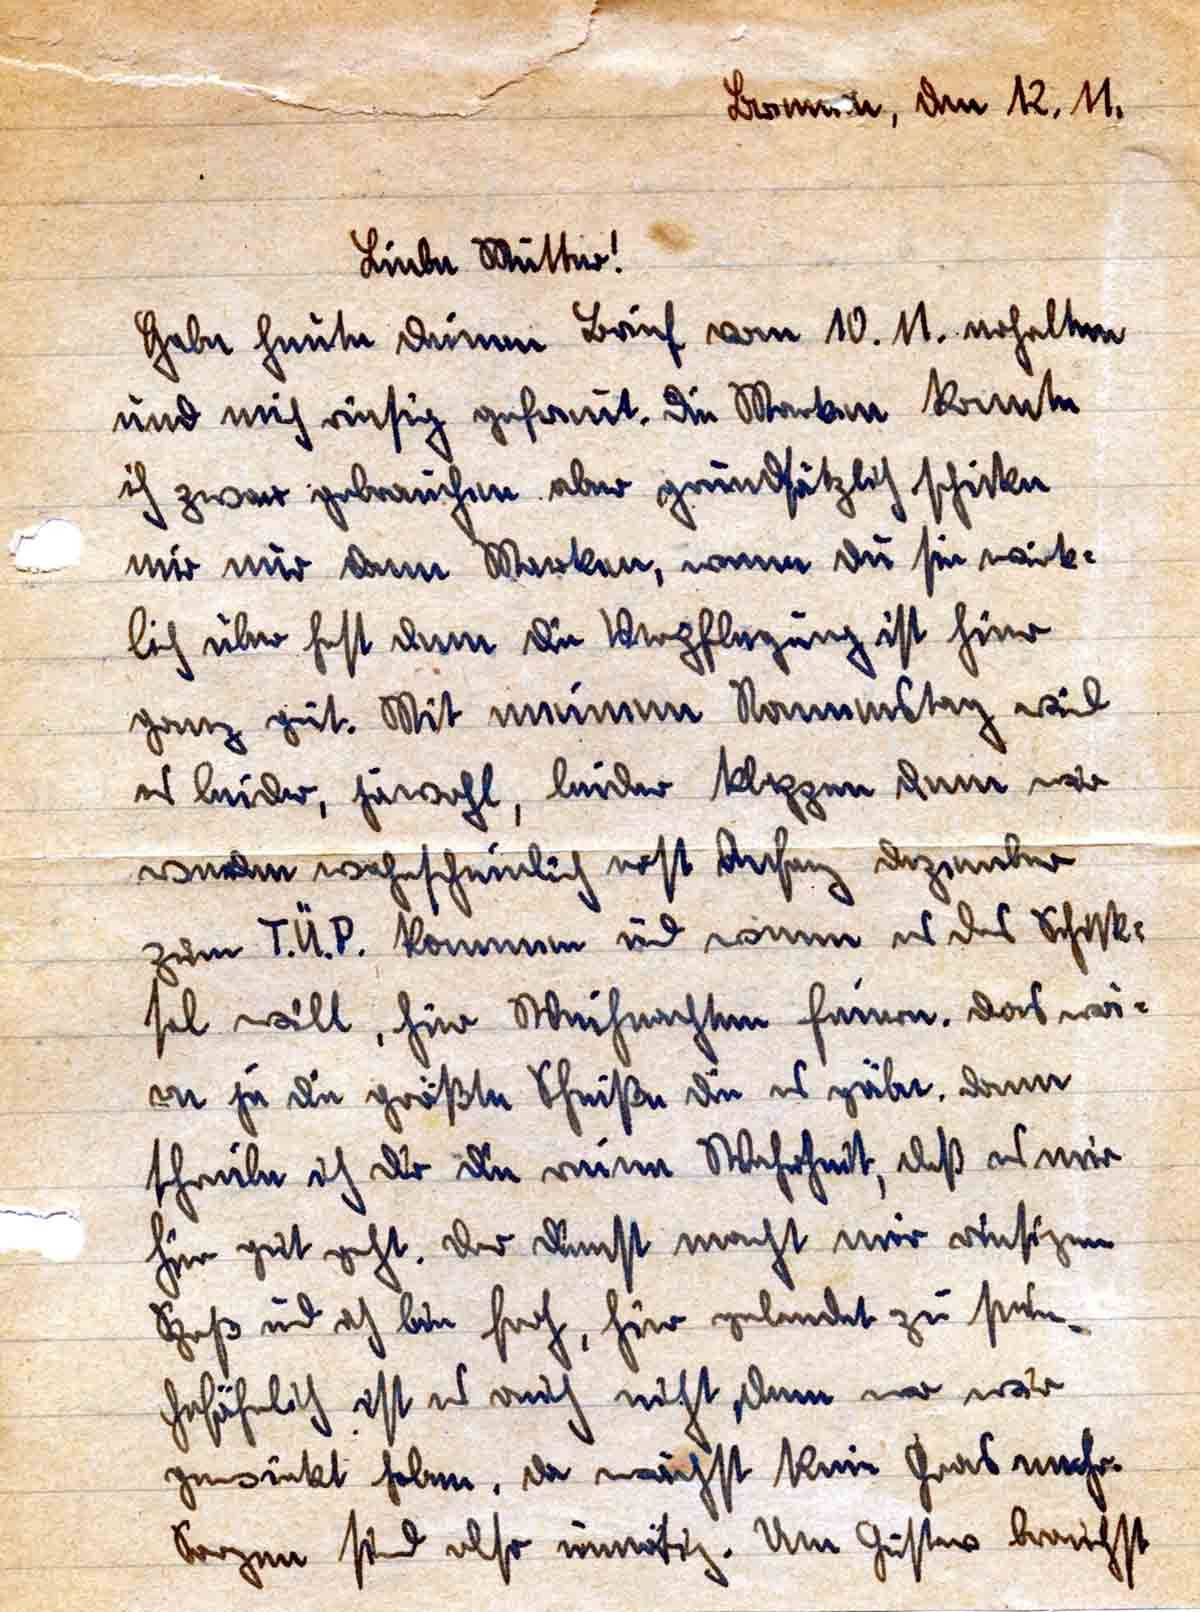 Bremen, den 12. 11.
Liebe Mutter!
Habe heute deinen Brief vom 10. 11. erhalten
und mich riesig gefreut. Die Marken konnte
ich zwar gebrauchen aber grundsätzlich schicke
mir nur dann Marken, wenn du sie wirk=
lich über hast denn die Verpflegung ist hier
ganz gut. Mit meinem Namenstag wird
es leider, jawohl, leider klappen denn wir
werden wahrscheinlich erst Anfang Dezember
zum T.Ü.P. kommen und wenn es das Schick=
sal will, hier Weihnachten feiern. Das wä=
re ja die größte Scheiße die es gäbe. Denn
schreibe ich dir die reine Wahrheit, daß es mir
hier gut geht. Der Dienst macht mir riesigen
Spaß und ich bin froh, hier gelandet zu sein.
Gefährlich ist es auch nicht, denn wo wir
gewirkt haben, da wächst kein Gras mehr.
Sorgen sind also unnötig. Um Gustav brauchst